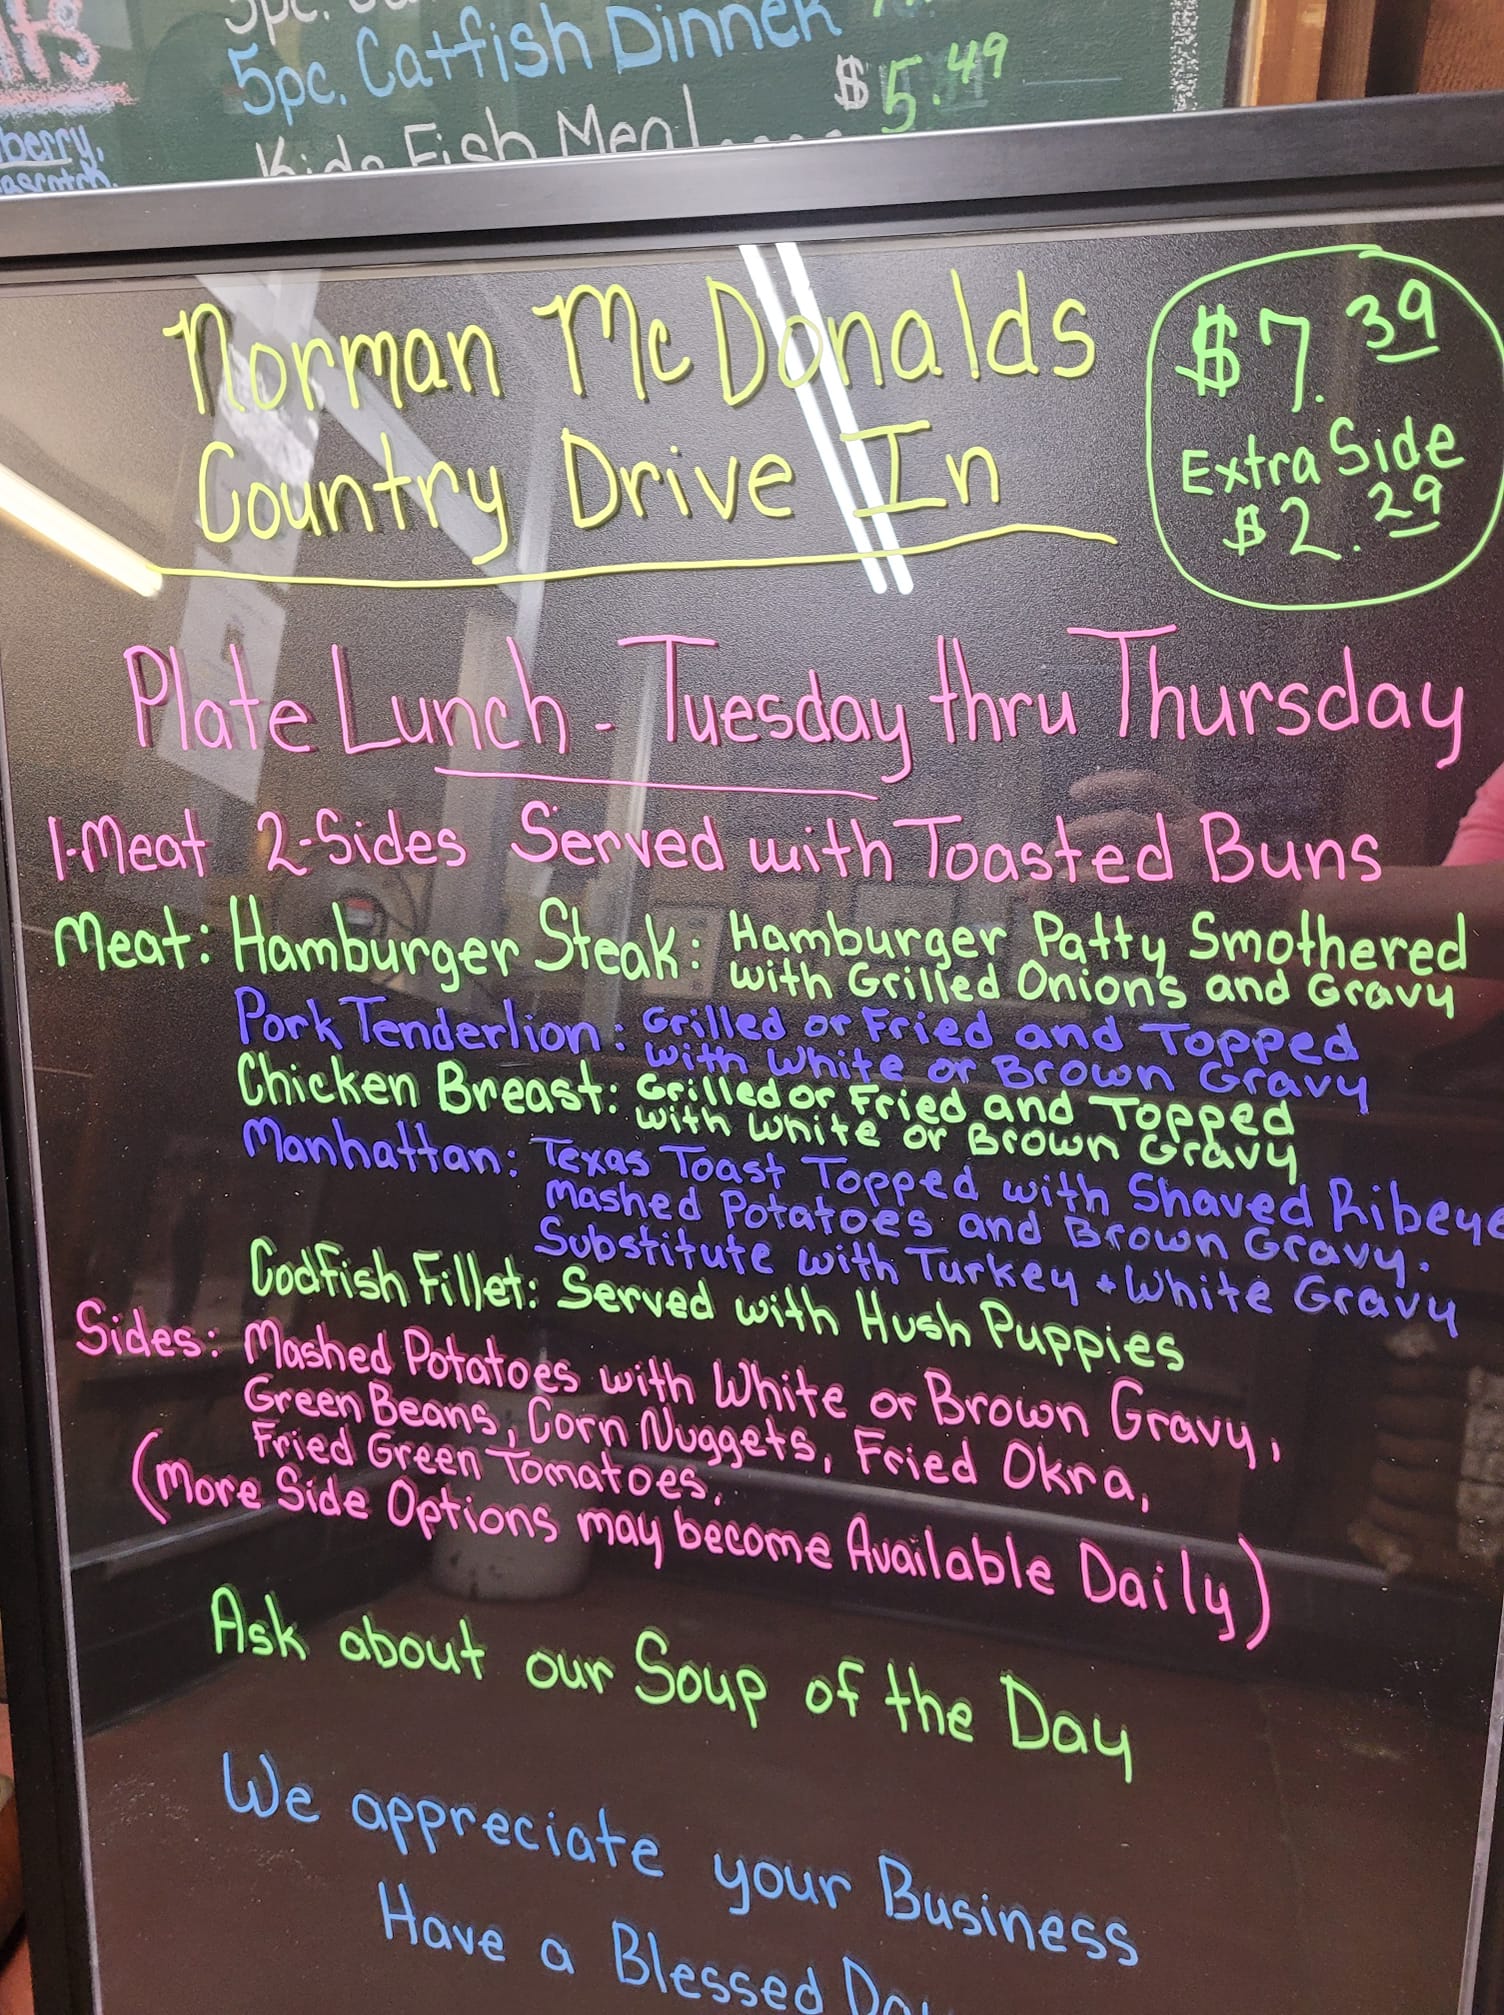 5pc. Catfish Dinner
Kids Fish Meal $5.49
berry,
Norman McDonalds
Country Drive In
$7.39
Extra Side
$2.29
Plate Lunch - Tuesday thru Thursday
1-Meat 2-Sides Served with Toasted Buns
Meat: Hamburger Steak: Hamburger Patty Smothered
with Grilled Onions and Gravy
Pork Tenderlion: Grilled or Fried and Topped
with White or Brown Gravy
Chicken Breast: Grilled or Fried and Topped
with White or Brown Gravy
Manhattan: Texas Toast Topped with Shaved Ribeye
Mashed Potatoes and Brown Gravy.
Substitute with Turkey + White Gravy
Codfish Fillet: Served with Hush Puppies
Sides: Mashed Potatoes with White or Brown Gravy,
Green Beans, Corn Nuggets, Fried Okra,
Fried Green Tomatoes.
(More Side Options may become Available Daily)
Ask about our Soup of the Day
We appreciate your Business
Have a Blessed Day